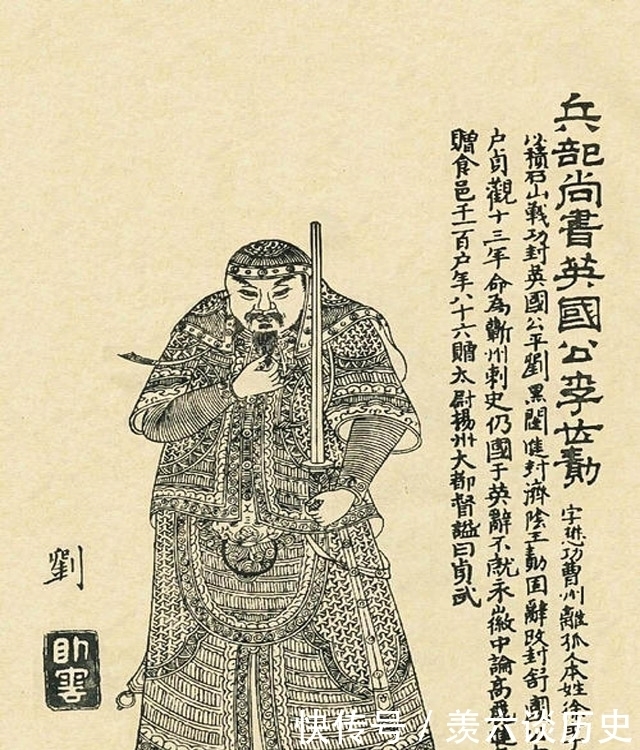 兵部尚書英國公李世勣
字懋功曹州離狐人本姓徐
以積石山戰功封英國公平劉黑闥進封濟陰王勣固辭改封舒國
户貞觀十三年命為蘄州刺史仍國于英辭不就永徽中論高
贈食邑千一百户年八十六贈太尉揚州大都督謚曰貞武
劉
快传号 / 羡六谈历史